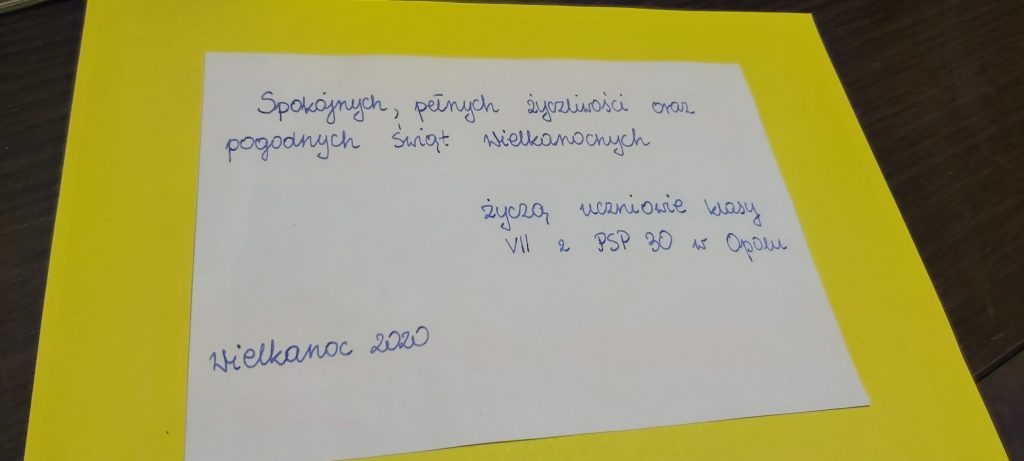 Spokojnych, pełnych życzliwości oraz
pogodnych świąt wielkanocnych
życzą uczniowie klasy
VII z PSP 30 w Opolu
Wielkanoc 2020